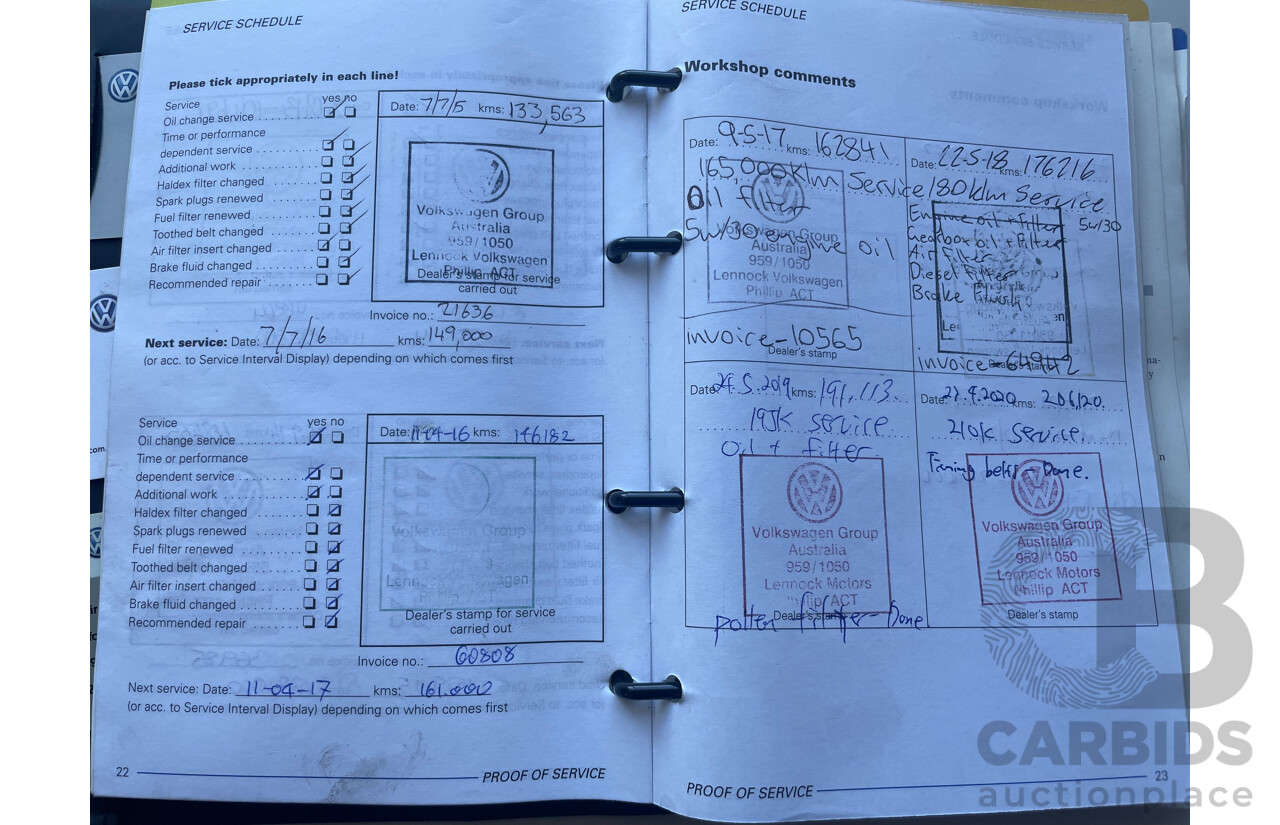 SERVICE SCHEDULE
Please tick appropriately in each line!
Service yes no
Oil change service
Time or performance
dependent service
Additional work
Haldex filter changed
Spark plugs renewed
Fuel filter renewed
Toothed belt changed
Air filter insert changed
Brake fluid changed
Recommended repair
Date: 7/7/5 kms: 133,563
Volkswagen Group
Australia
959/1050
Lennock Volkswagen
Phillip ACT
Dealer's stamp for service
carried out
Invoice no.: 21636
Next service: Date: 7/7/16 kms: 149,000
(or acc. to Service Interval Display) depending on which comes first
Service yes no
Oil change service
Time or performance
dependent service
Additional work
Haldex filter changed
Spark plugs renewed
Fuel filter renewed
Toothed belt changed
Air filter insert changed
Brake fluid changed
Recommended repair
Date: 11-04-16 kms: 146182
Volkswagen Group
Lennock Volkswagen
Dealer's stamp for service
carried out
Invoice no.: 60808
Next service: Date: 11-04-17 kms: 161.000
(or acc. to Service Interval Display) depending on which comes first
22
PROOF OF SERVICE
SERVICE SCHEDULE
Workshop comments
Date: 9-5-17 kms: 162841
165,000 klm Service
Oil filter
5w/30 engine oil
Volkswagen Group
Australia
959/1050
Lennock Volkswagen
Phillip ACT
invoice-10565
Dealer's stamp
Date: 22-5-18 kms: 176216
180 klm Service
Engine oil + Filter 5w/30
Gearbox oil + Filter
Air Filter
Diesel Filter
Brake
invoice-
Dealer's stamp
Date: 24.5.2019 kms: 191,113
195K service
Oil + filter
Volkswagen Group
Australia
959/1050
Lennock Motors
Phillip ACT
Dealer's stamp
pollen filter - Done
Date: kms: 206120
210K service
Timing belts - Done.
Volkswagen Group
Australia
959/1050
Lennock Motors
Phillip ACT
Dealer's stamp
PROOF OF SERVICE
23
CARBIDS
auctionplace